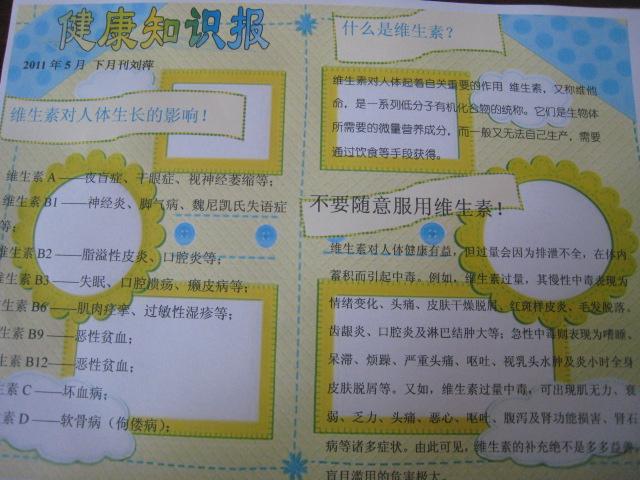 健康知识报
2011 年 5 月 下月刊刘萍
维生素对人体生长的影响！
维生素 A——夜盲症、干眼症、视神经萎缩等；
维生素 B1 ——神经炎、脚气病、魏尼凯氏失语症
等；
维生素 B2 ——脂溢性皮炎、口腔炎等；
维生素 B3——失眠、口腔溃疡、癞皮病等；
生素 B6 ——肌肉痉挛、过敏性湿疹等；
生素 B9 ——恶性贫血；
生素 B12——恶性贫血；
生素 C ——坏血病；
素 D ——软骨病（佝偻病）；
什么是维生素？
维生素对人体起着自关重要的作用 维生素，又称维他
命，是一系列低分子有机化合物的统称。它们是生物体
所需要的微量营养成分，而一般又无法自己生产，需要
通过饮食等手段获得。
不要随意服用维生素！
维生素对人体健康有益，但过量会因为排泄不全，在体内
蓄积而引起中毒。例如，维生素过量，其慢性中毒表现为
情绪变化、头痛、皮肤干燥脱屑、红斑样皮炎、毛发脱落、
齿龈炎、口腔炎及淋巴结肿大等；急性中毒则表现为嗜睡、
呆滞、烦躁、严重头痛、呕吐、视乳头水肿及炎小时全身
皮肤脱屑等。又如，维生素过量中毒，可出现肌无力、衰
弱、乏力、头痛、恶心、呕吐、腹泻及肾功能损害、肾石
病等诸多症状。由此可见，维生素的补充绝不是多多益善，
盲目滥用的危害极大。